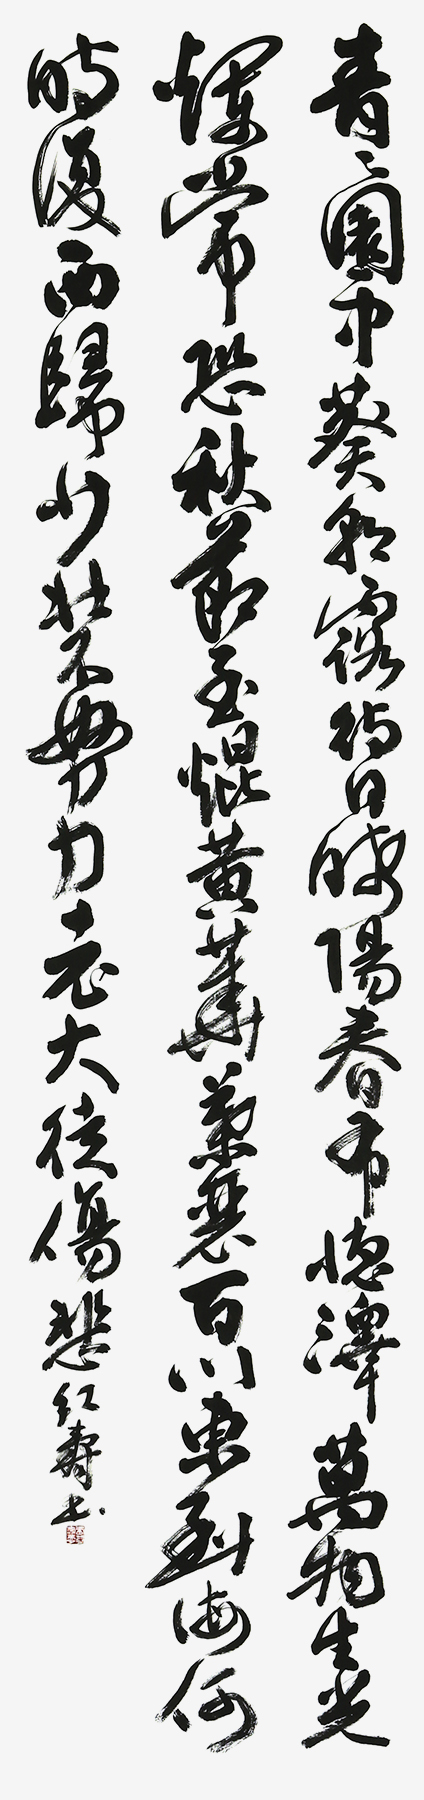 青々園中葵朝露待日晞陽春布德澤萬物生光
輝常恐秋節至焜黄華葉衰百川東到海何
時復西歸少壯不努力老大徒傷悲
红寿书